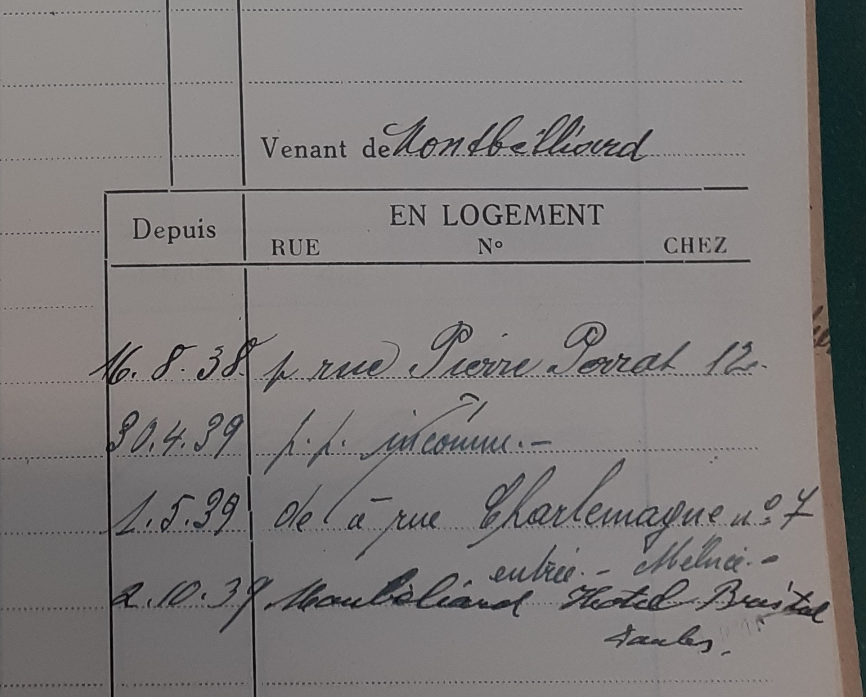 Venant de Montbélliard
Depuis
EN LOGEMENT
RUE N° CHEZ
16.8.38 p rue Pierre Porrat 12.
30.4.39 p.p. inconnu.-
1.5.39 de à rue Charlemagne n° 7
entrée.-
2.10.39 Hotel Bristal